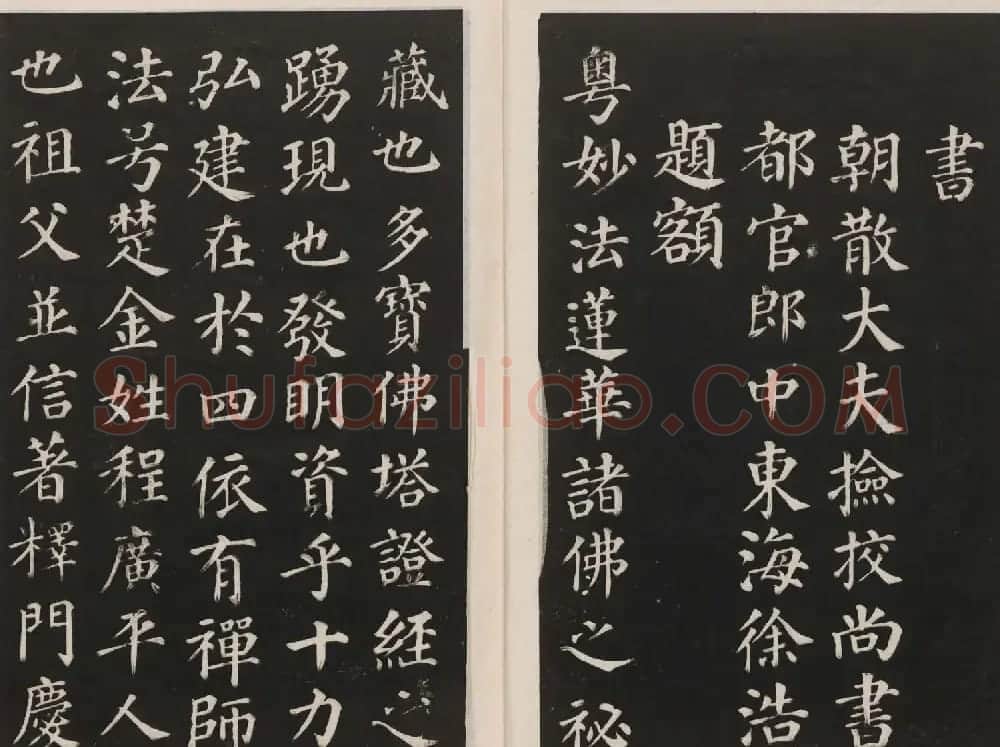 書
朝散大夫撿挍尚書
都官郎中東海徐浩
題額
粤妙法蓮華諸佛之祕
藏也多寶佛塔證經之
踴現也發明資乎十力
弘建在於四依有禪師
法号楚金姓程廣平人
也祖父並信著釋門慶
Shufaziliao.COM